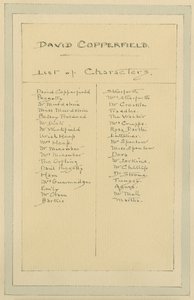 DAVID COPPERFIELD.
List of Characters.
David Copperfield
Peggotty
Mr Murdstone
Miss Murdstone
Betsey Trotwood
Mr Dick
Mr Wickfield
Uriah Heep
Mrs Heep
Mr Micawber
Mrs Micawber
Danl Peggotty
Ham
Mrs Gummidge
Emily
Barkis
Steerforth
Mrs Steerforth
Mr Creakle
Traddles
The Waiter
Mrs Crupp
Rosa Dartle
Littimer
Mr Spenlow
Miss Spenlow
Dora
Mr Jorkins
Mr Chillip
Dr Strong
Agnes
Martha